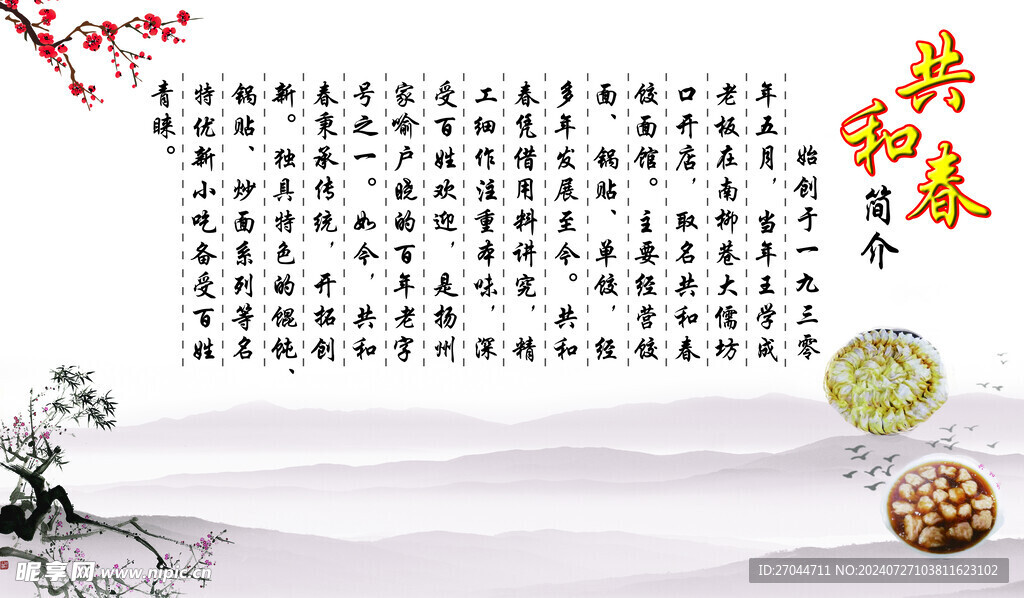 共和春
简介
始创于一九三零
年五月，当年王学成
老板在南柳巷大儒坊
口开店，取名共和春
饺面馆。主要经营饺
面、锅贴、单饺，经
多年发展至今。共和
春凭借用料讲究，精
工细作注重本味，深
受百姓欢迎，是扬州
家喻户晓的百年老字
号之一。如今，共和
春秉承传统，开拓创
新。独具特色的馄饨、
锅贴、炒面系列等名
特优新小吃备受百姓
青睐。
昵享网 www.nipic.cn
ID:27044711 NO:20240727103811623102